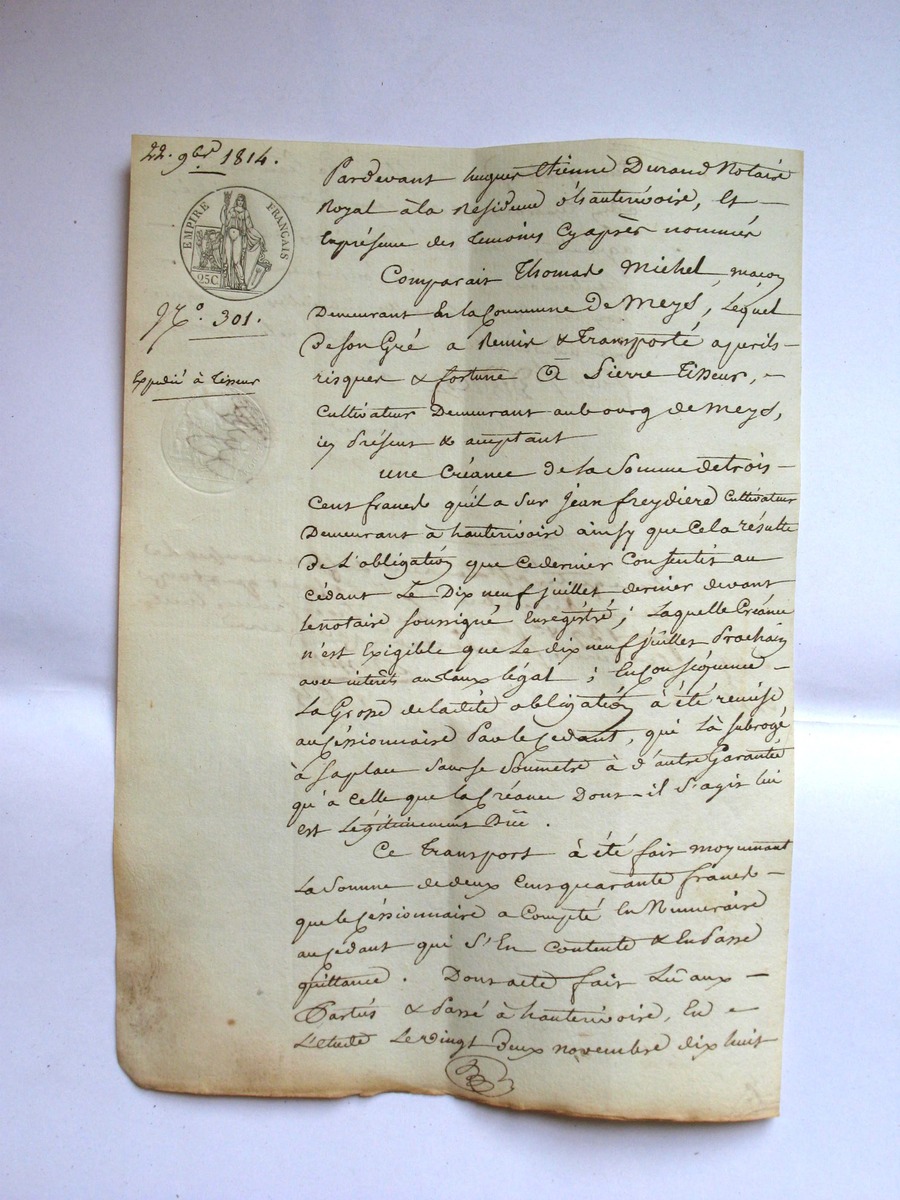 22. 9bre 1814.
EMPIRE FRANÇAIS
25C
N.º 301.
Expédié à Tisseur
Pardevant hugues Etienne Durand Notaire
Royal à la Résidence d'hauterivoire, Et
En présence des Temoins Cy après nommés
Comparait Thomas Michel, maçon
Demeurant En la Commune De Meys, Lequel
De son Gré a Remis & Transporté a perils
risques & fortune à Pierre Tisseur,
Cultivateur Demeurant au bourg de Meys,
icy présent & acceptant
une Créance De la Somme de trois
Cens francs qu'il a Sur Jean freydiere Cultivateur
Demeurant à hauterivoire ainsy que Cela résulte
De L'obligation que ce dernier Consentit au
Cédant Le Dix neuf juillet dernier devant
le notaire soussigné Enregistré; Laquelle Créance
n'est Exigible que Le dix neuf juillet Prochain
avec intérêts au taux légal; En Conséquence
La Grosse de ladite obligation à été remise
au Cessionnaire Par le Cédant, qui L'à Subrogé
à Sa place Sans se Soumetre à d'autre Garantie
qu'à Celle que la Créance Dont il S'agit lui
est Légitimement Düe.
Ce Transport à été fait moyennant
La Somme de deux Cens quarante francs
que le Céssionnaire a Compté En Numeraire
au Cédant qui S'En Contente & En Passe
quittance. Dont acte fait Lû aux
Parties & Passé à hauterivoire, En
L'etude Le vingt deux novembre dix huit